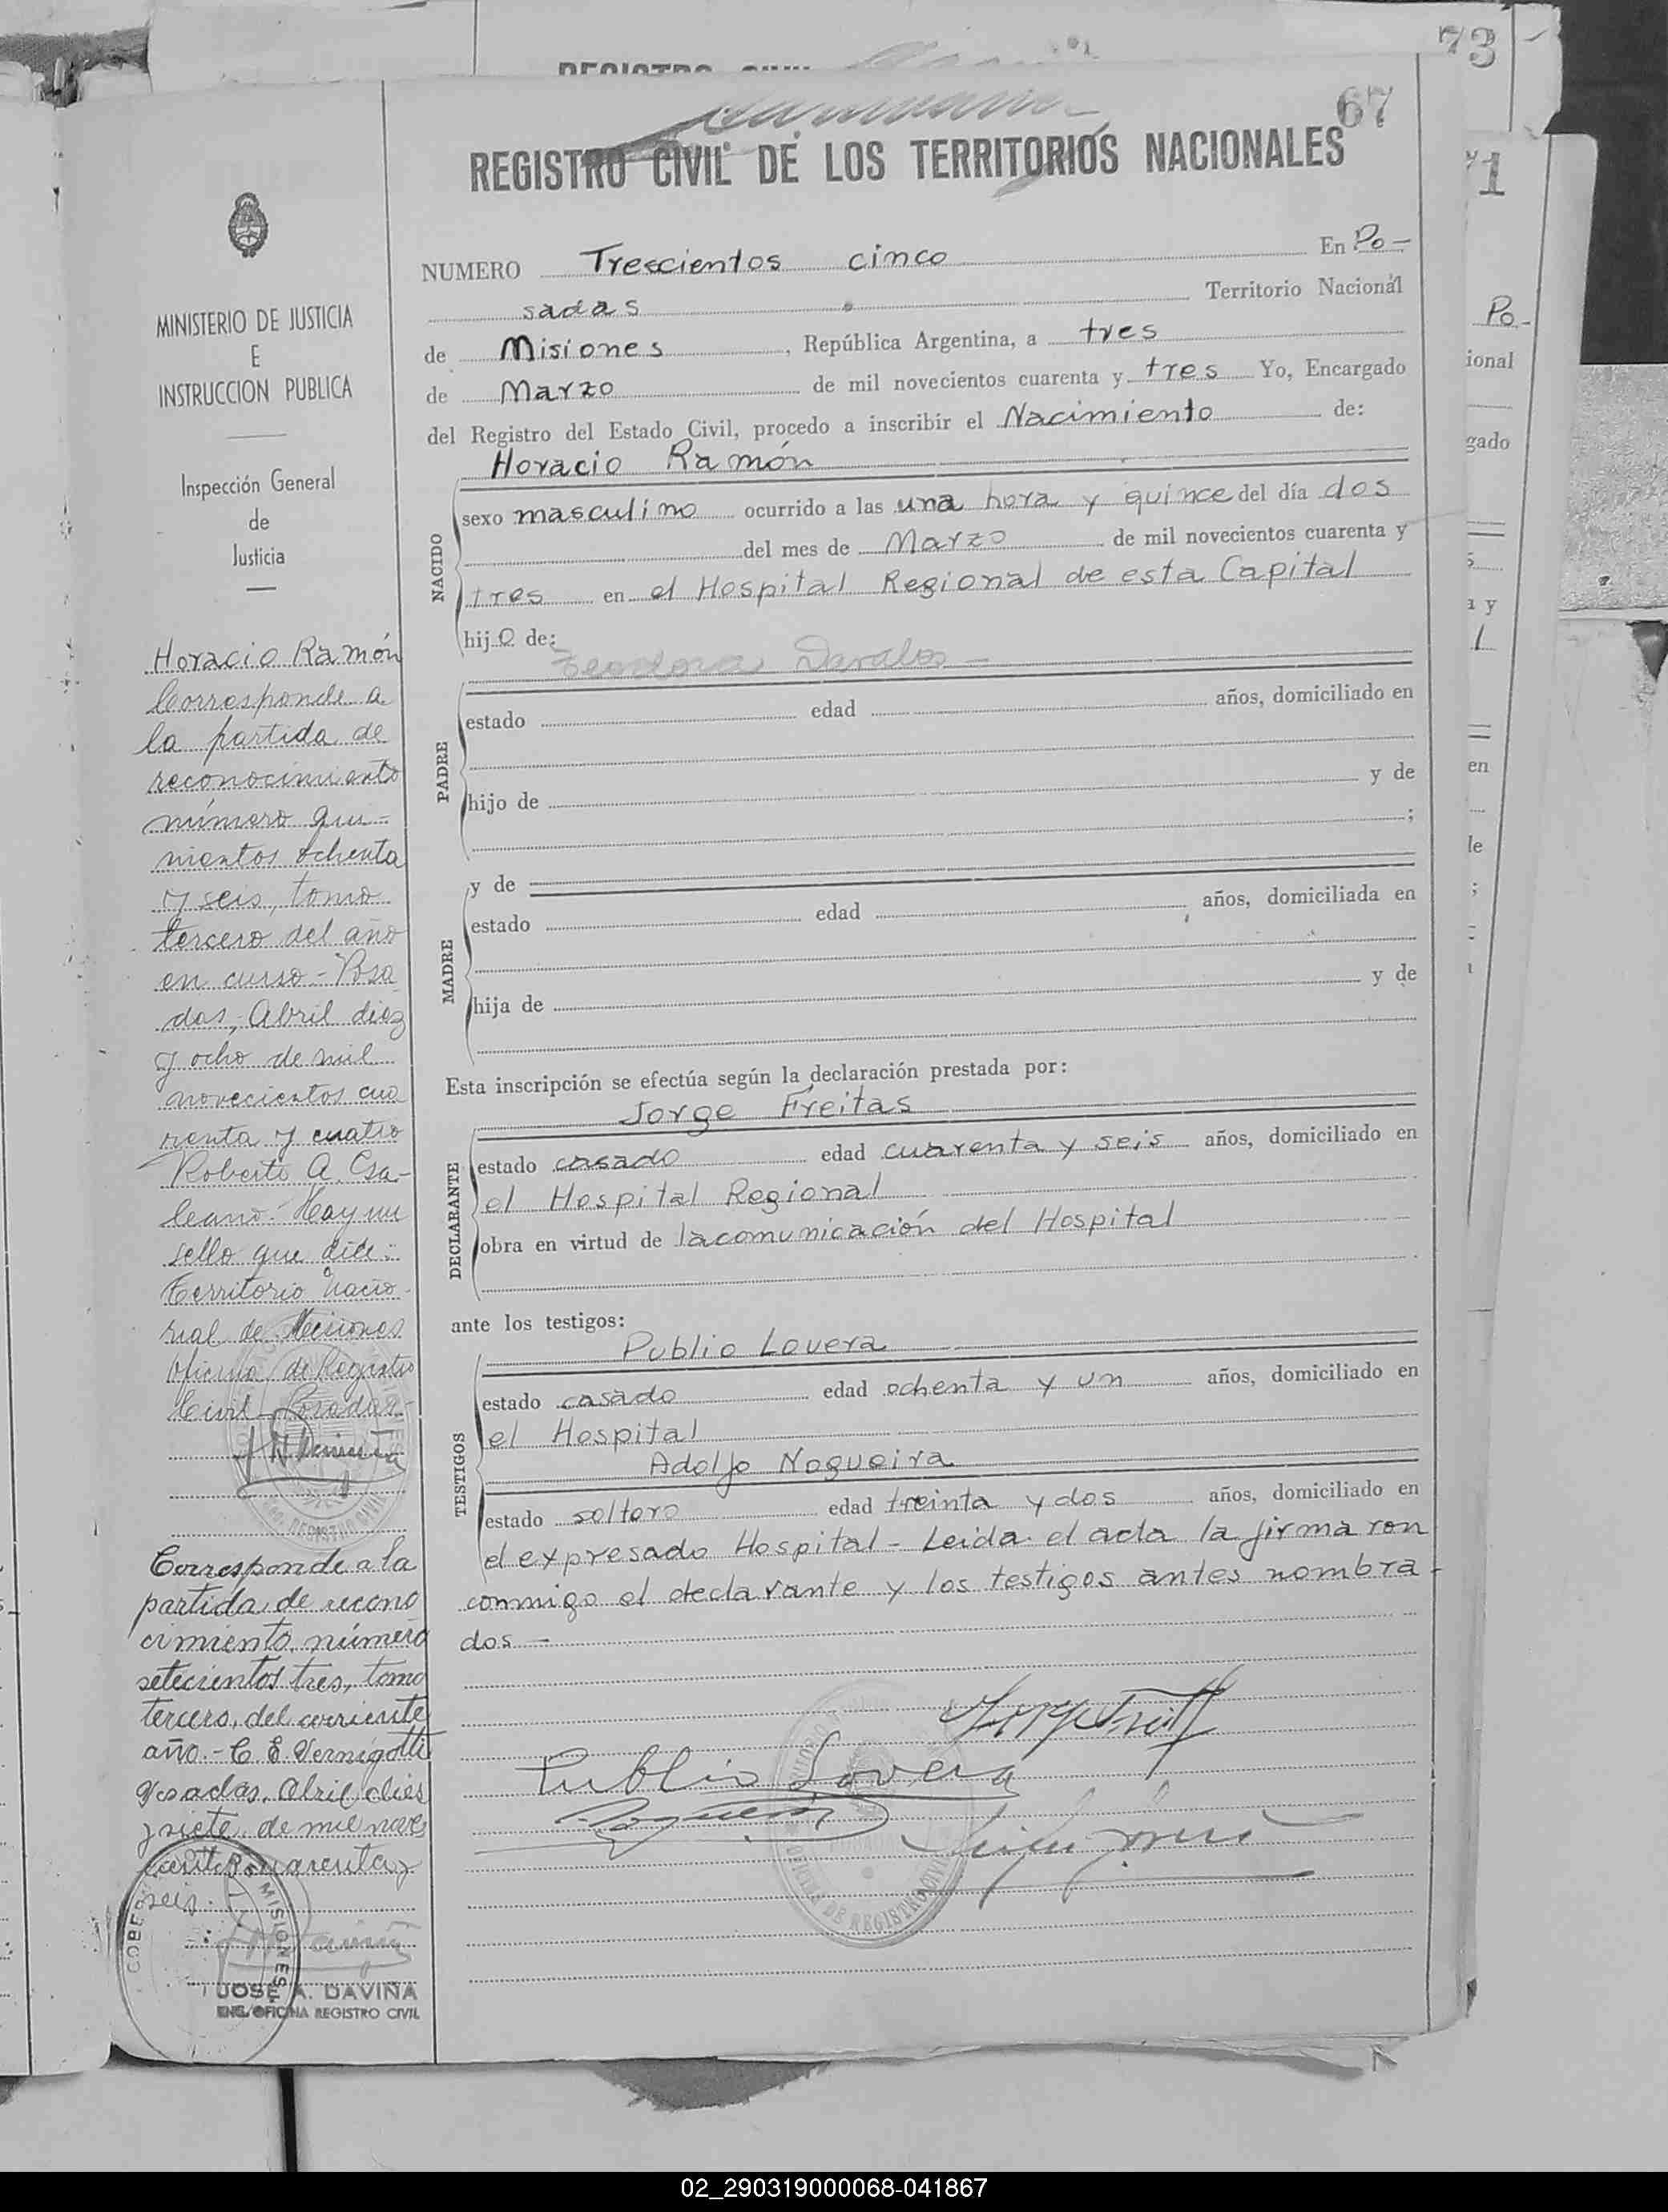 73
67
REGISTRO CIVIL DE LOS TERRITORIOS NACIONALES
71
MINISTERIO DE JUSTICIA
E
INSTRUCCION PUBLICA
Inspección General
de
Justicia
Horacio Ramón
Corresponde a
la partida de
reconocimiento
número qui-
nientos ochenta
y seis, tomo
tercero del año
en curso - Posa
das, Abril diez
y ocho de mil
novecientos cua
renta y cuatro
Roberto A. Gsa-
leano. Hay un
sello que dice:
Territorio nacio-
nal de Misiones
Oficina de Registro
Civil Posadas.
Corresponde a la
partida de recono
cimiento número
setecientos tres, tomo
tercero, del corriente
año.- C. E. Vernigotti
Posadas, Abril dies
y siete de mil nove
cientos cuarenta y
seis.
JOSE A. DAVIÑA
ENC. OFICINA REGISTRO CIVIL
NUMERO Trescientos cinco En Po-
sadas Territorio Nacional
de Misiones, República Argentina, a tres
de Marzo de mil novecientos cuarenta y tres Yo, Encargado
del Registro del Estado Civil, procedo a inscribir el Nacimiento de:
Horacio Ramón
NACIDO
sexo masculino ocurrido a las una hora y quince del día dos
del mes de Marzo de mil novecientos cuarenta y
tres en el Hospital Regional de esta Capital
hijo de:
Teodora Davalos -
PADRE
estado edad años, domiciliado en
hijo de y de
;
y de
MADRE
estado edad años, domiciliada en
hija de y de
Esta inscripción se efectúa según la declaración prestada por:
Jorge Freitas
DECLARANTE
estado casado edad cuarenta y seis años, domiciliado en
el Hospital Regional
obra en virtud de la comunicación del Hospital
ante los testigos:
Publio Lovera
TESTIGOS
estado casado edad ochenta y un años, domiciliado en
el Hospital
Adolfo Nogueira
estado soltero edad treinta y dos años, domiciliado en
el expresado Hospital - Leida el acta la firmaron
conmigo el declarante y los testigos antes nombra-
dos -
Publio Lovera
Po-
ional
gado
a y
en
le
02_290319000068-041867